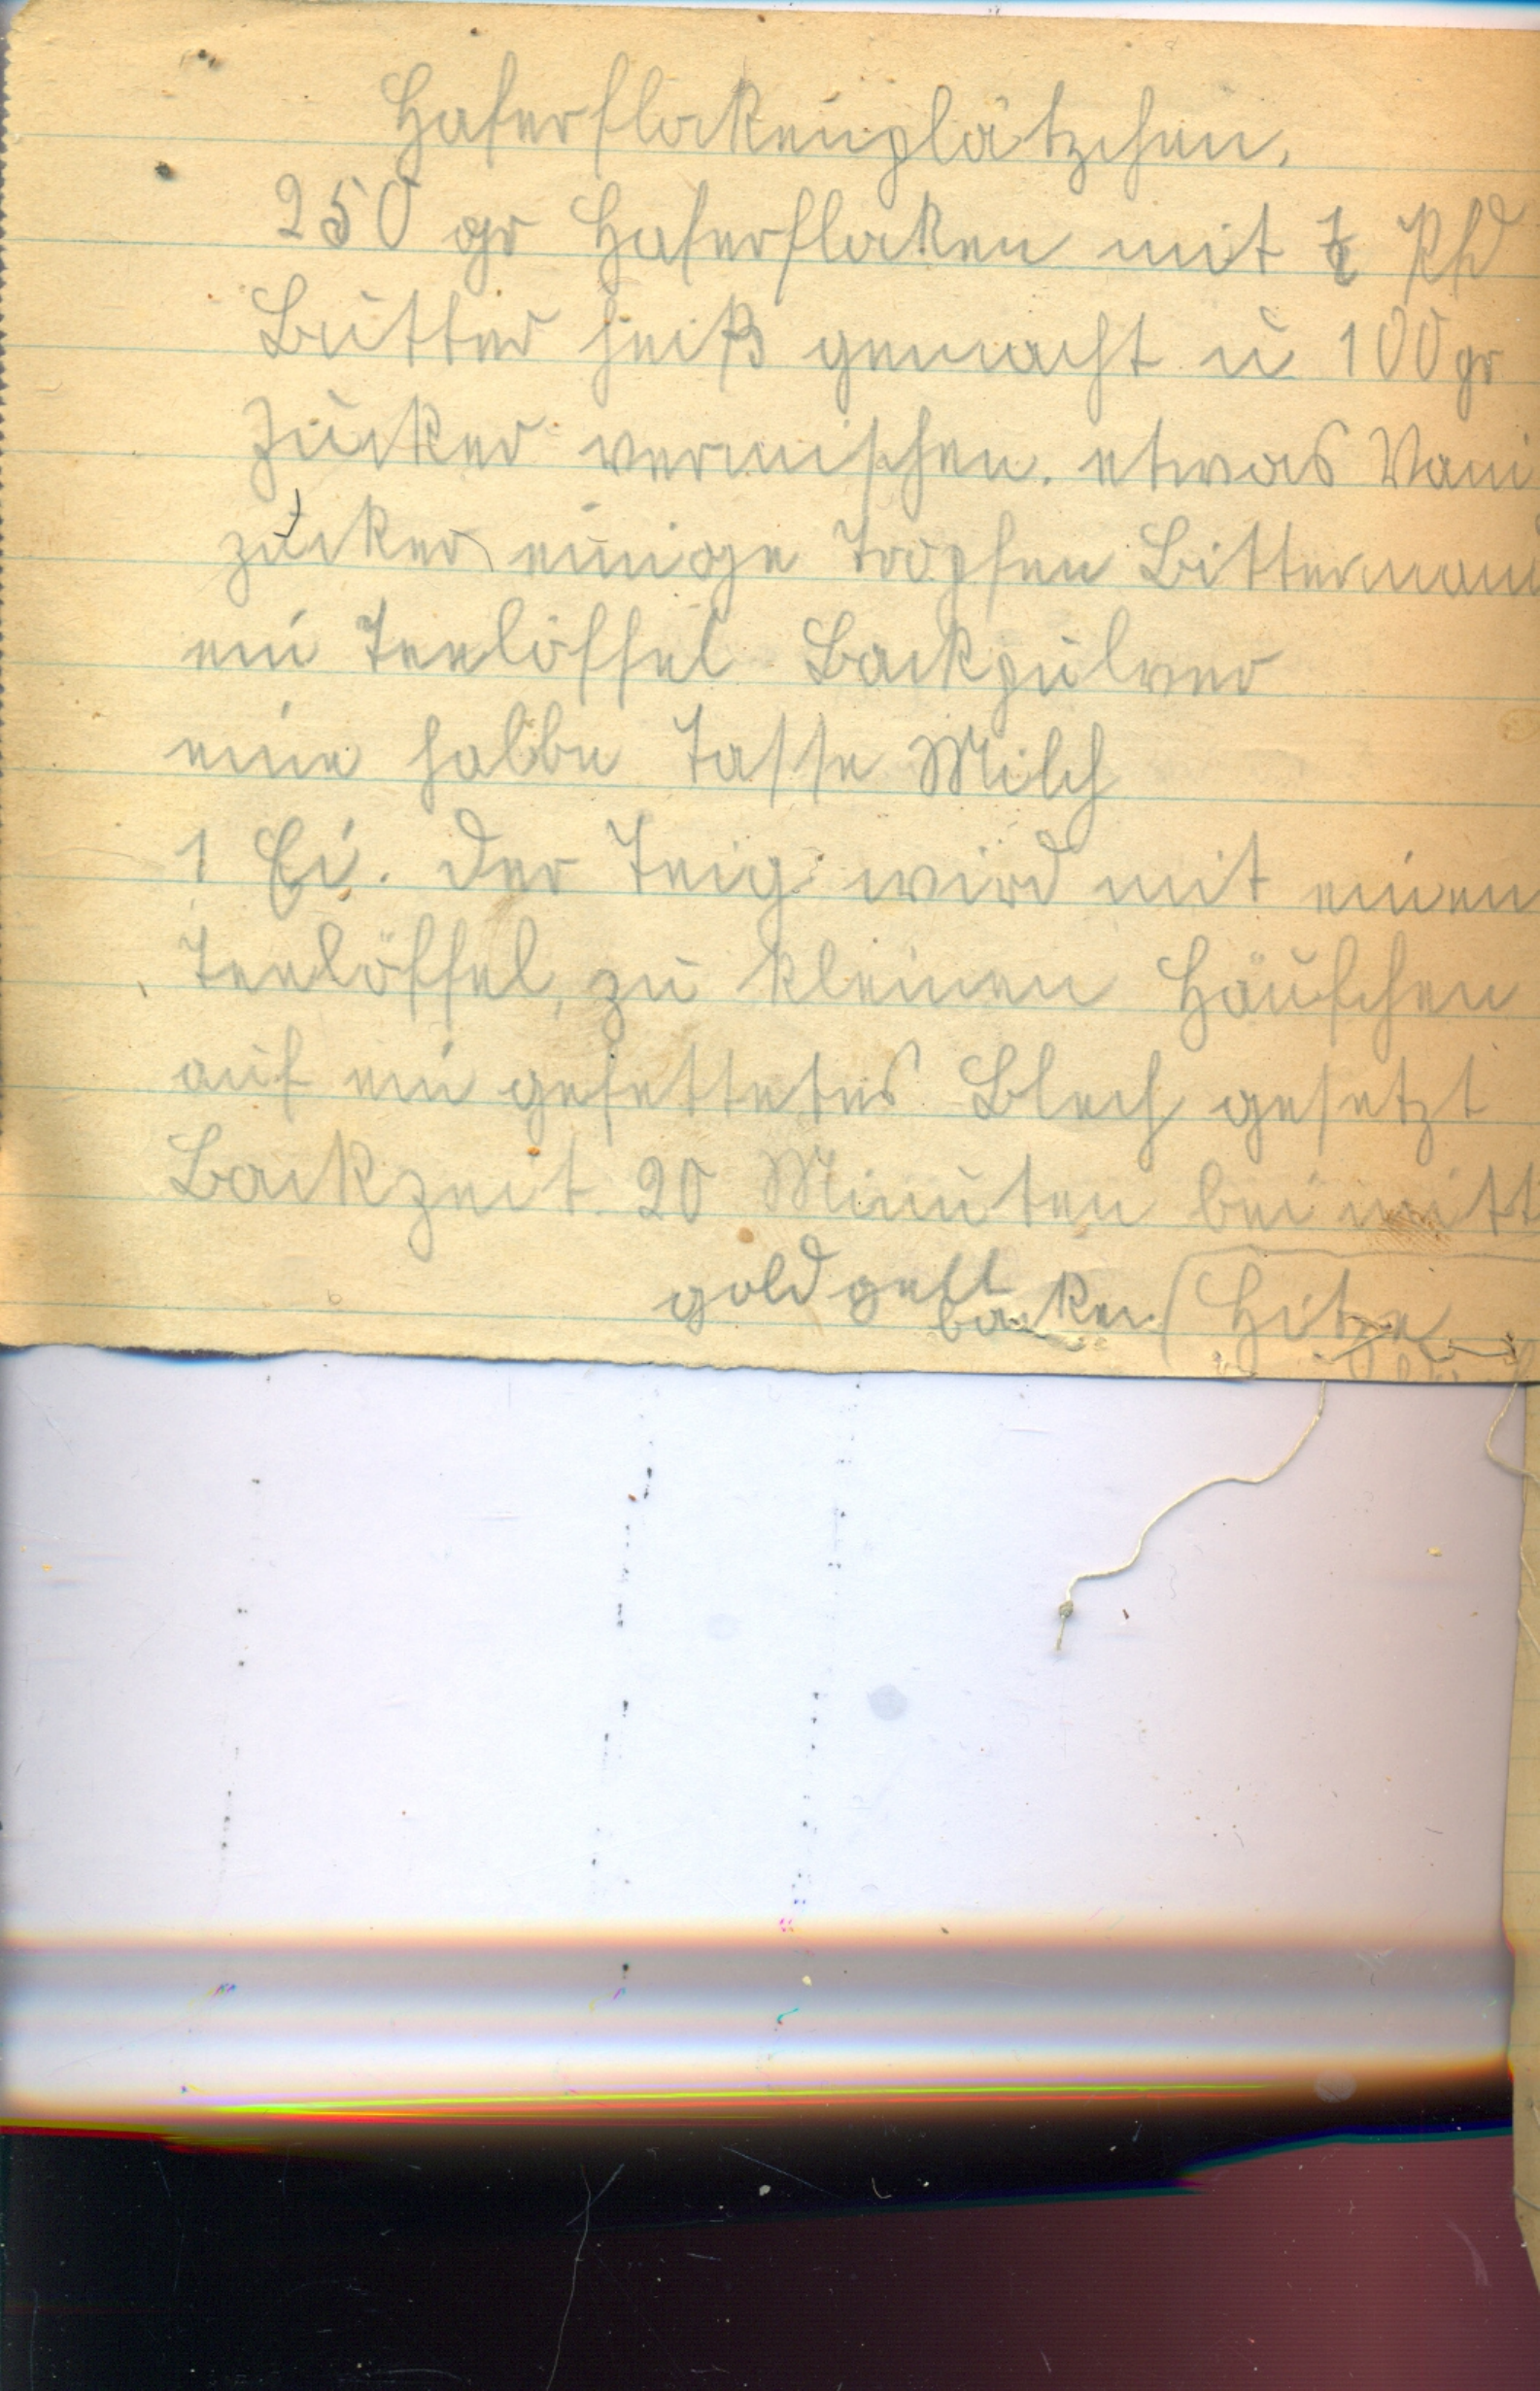 Haferflockenplätzchen.
250 gr Haferflocken mit Pfd
Butter heiß gemacht u 100 gr
Zucker vermischen. etwas Vani
zucker einige Tropfen Bittermand
ein Teelöffel Backpulver
eine halbe Tasse Milch
1 Ei. Der Teig wird mit einen
Teelöffel, zu kleinen Häufchen
auf ein gefettetes Blech gesetzt
Backzeit 20 Minuten bei mitt
goldgelb backen (Hitze